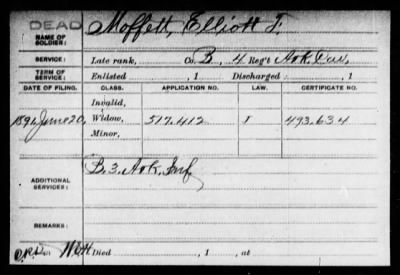 DEAD
NAME OF SOLDIER: Moffett, Elliott T.
SERVICE: Late rank, Co. B, 4 Reg't Ark. Cav.
TERM OF SERVICE: Enlisted , 1 Discharged , 1
DATE OF FILING. CLASS. APPLICATION NO. LAW. CERTIFICATE NO.
Invalid,
1891 June 20, Widow, 517.412 I 493.634
Minor,
ADDITIONAL SERVICES: B. 3. Ark. Inf
REMARKS:
Died , 1 , at